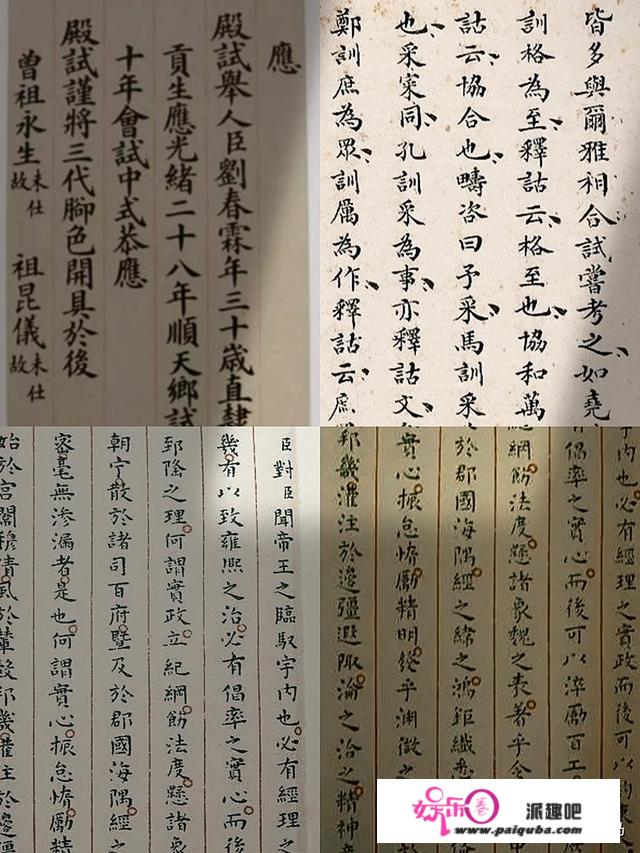 應
殿試舉人臣劉春霖年三十歲直隸
貢生應光緒二十八年順天鄉試
十年會試中式恭應
殿試謹將三代腳色開具於後
曾祖永生未仕故 祖昆儀未仕故
皆多與爾雅相合試嘗考之如堯
訓格為至釋詁云格至也協和萬
詁云協合也疇咨曰予采馬訓采
也采寀同孔訓采為事亦釋詁文
鄭訓庶為眾訓厲為作釋詁云庶
臣對臣聞帝王之臨馭宇內也必有經理之
幾有以致雍熙之治必有倡率之實心而後
郅隆之理何謂實政立紀綱飭法度懸諸象
朝寧散於諸司百府暨及於郡國海隅經之
審毫無滲漏者是也何謂實心振怠惰勵精
始於宮闈穆清風於輦轂邦畿灌注於邊疆
宇內也必有經理之實政而後可以約束
有倡率之實心而後可以淬勵百工
紀綱飭法度懸諸象魏之表著乎令
於郡國海隅經之緯之鴻鉅纖悉
實心振怠惰勵精明發乎淵微之
邦畿灌注於邊疆遐陬淪之洽之精神
娱乐圈 派趣吧
www.paiquba.com